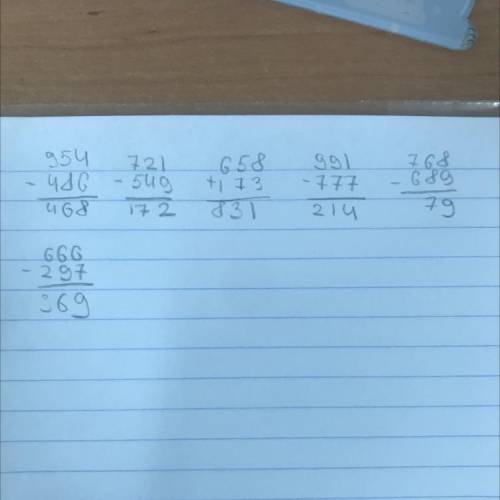 954 721 658 991 768
- 486 - 549 + 173 - 777 - 689
468 172 831 214 79
666
- 297
369